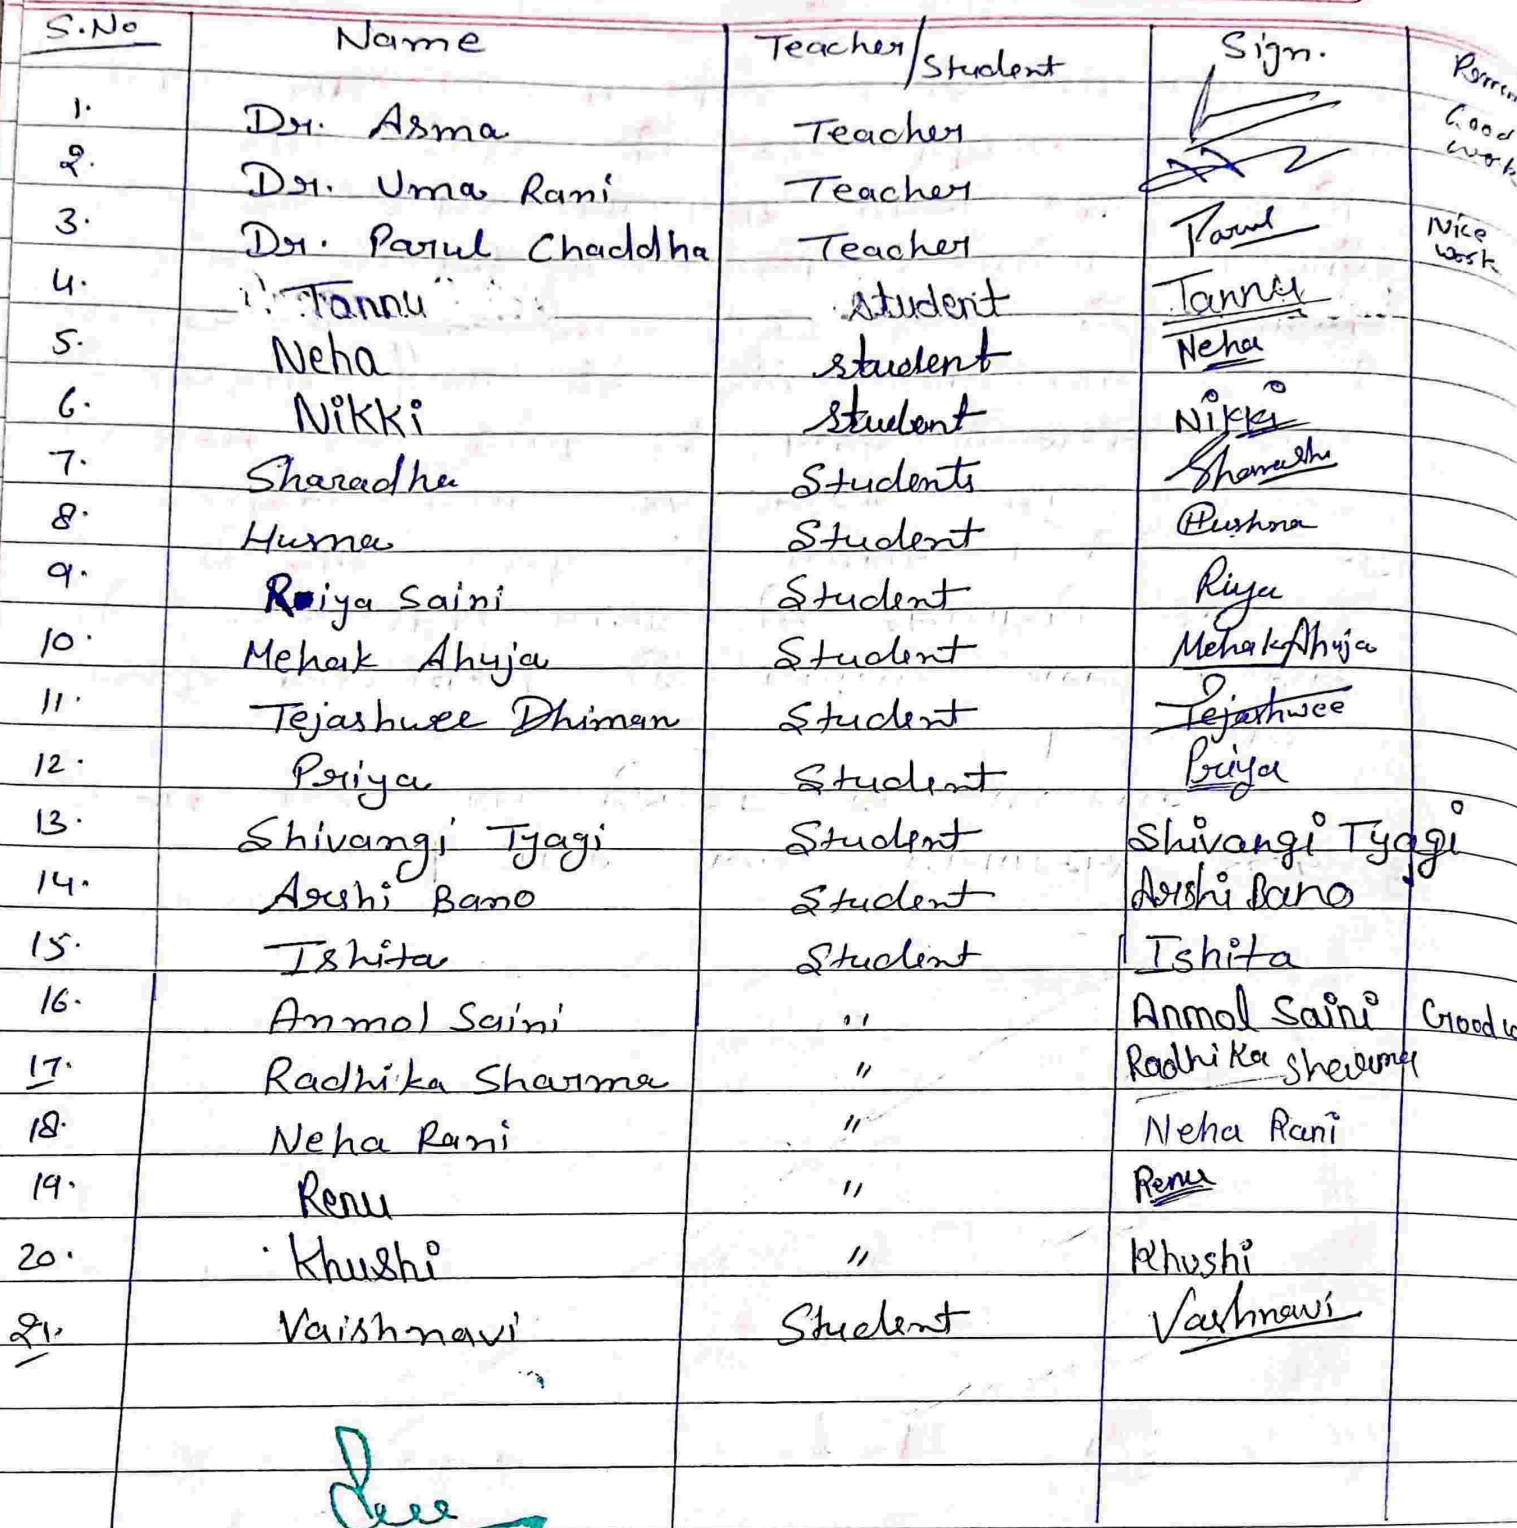 S.No Name Teacher/Student Sign.
1. Dr. Asma Teacher Good work
2. Dr. Uma Rani Teacher
3. Dr. Parul Chaddha Teacher Parul Nice work
4. Tannu Student Tannu
5. Neha Student Neha
6. Nikki Student Nikki
7. Sharadha Students
8. Husna Student Hushna
9. Riya Saini Student Riya
10. Mehak Ahuja Student Mehak Ahuja
11. Tejashwee Dhiman Student Tejashwee
12. Priya Student Priya
13. Shivangi Tyagi Student Shivangi Tyagi
14. Arshi Bano Student Arshi Bano
15. Ishita Student Ishita
16. Anmol Saini " Anmol Saini Good
17. Radhika Sharma " Radhika Sharma
18. Neha Rani " Neha Rani
19. Renu " Renu
20. Khushi " Khushi
21. Vaishnavi Student Vaishnavi